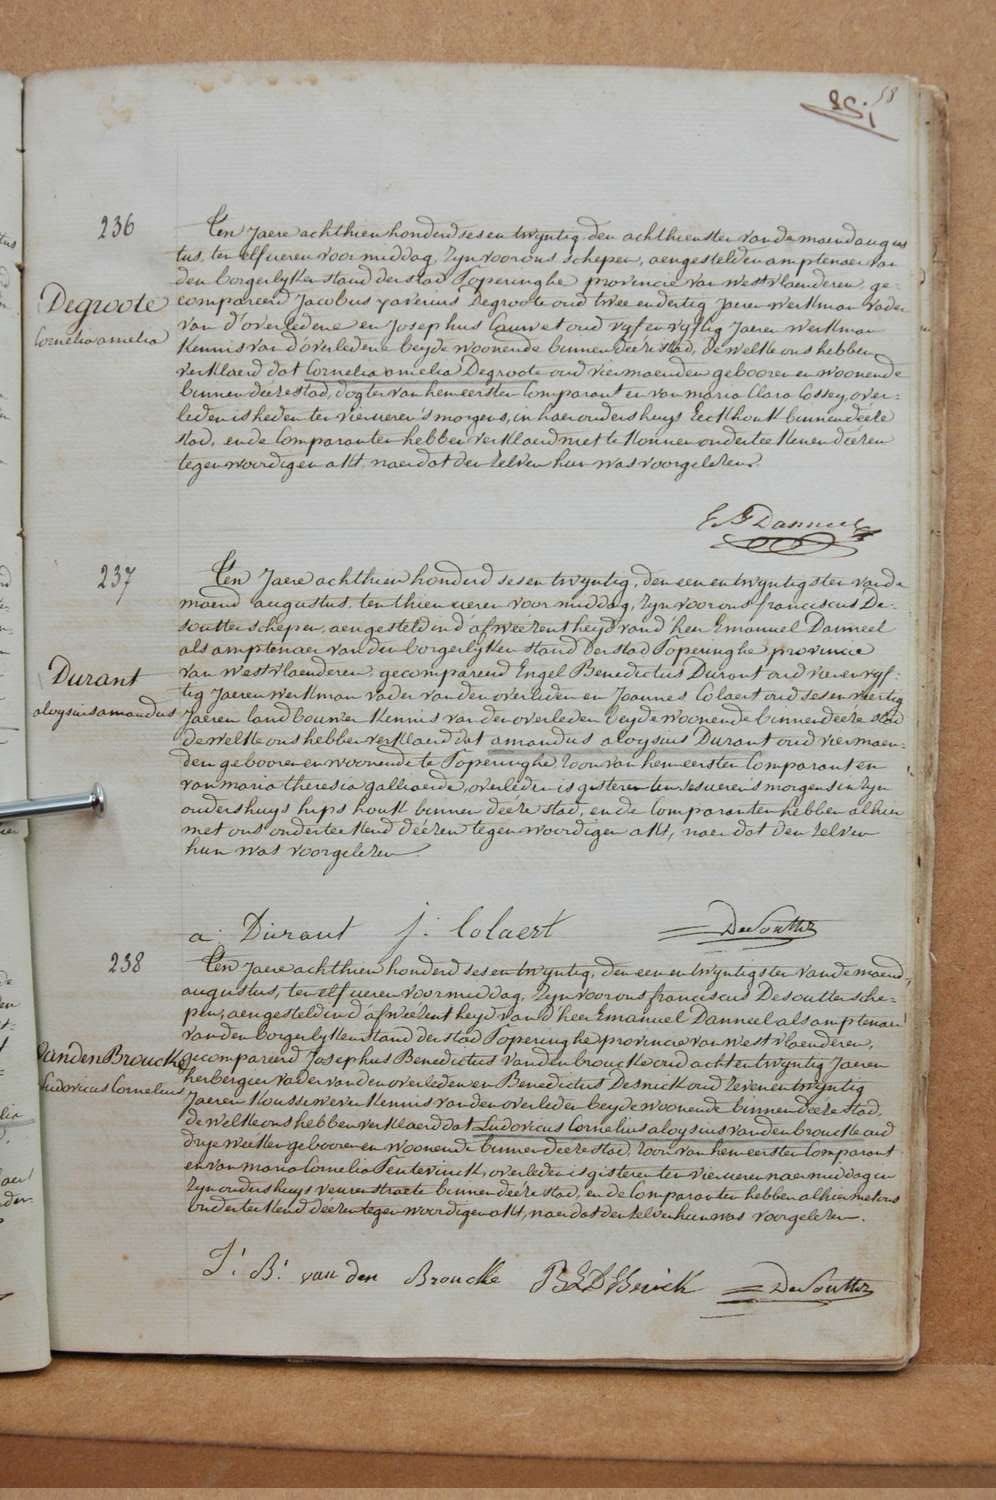 58
236
Degroote
Cornelia amelia
Ten Jaere achthien honderd ses en twyntig, den achthiensten van de maend augus
tus, ten elf ueren voormiddag, Zyn voor ons schepen, aengesteld en amptenaer van
den borgerlyken stand der stad Poperinghe provincie van westvlaenderen, ge-
compareerd Jacobus xaverius Degroote oud twee en dertig Jaeren werkman vader
van d'overledene en Josephus Cauwet oud vyf en vyftig Jaeren werkman
Kennis van d'overledene beyde woonende binnen deéze stad, de welke ons hebben
verklaerd dat Cornelia amelia Degroote oud vier maenden gebooren en woonende
binnen deéze stad, dogter van hem eersten Comparant en van maria Clara Cossey, over-
leden is heden ten vier ueren 's morgens, in haer ouders huys Eeckhout binnen deéze
stad, ende Comparanten hebben verklaerd niet te konnen onderteekenen deézen
tegenwoordigen akt, naer dat den zelven hun was voorgelezen.
237
Durant
aloysius amandus
Ten Jaere achthien honderd ses en twyntig, den een en twyntigsten van de
maend augustus, ten thien ueren voormiddag, Zyn voor ons franciscus De-
soutter schepen, aengesteld in d'afweézentheyd van d'heer Emanuel Danneel
als amptenaer van den borgerlyken stand der stad Poperinghe provincie
van westvlaenderen, gecompareerd Engel Benedictus Durant oud vier en vyf-
tig Jaeren werkman vader van den overleden en Joannes Colaert oud ses en veertig
Jaeren landbouwer Kennis van den overleden beyde woonende binnen deéze stad
de welke ons hebben verklaerd dat amandus aloysius Durant oud vier maen-
den gebooren en woonende te Poperinghe, zoon van hem eersten Comparant en
van maria theresia galliaerde, overleden is gisteren ten ses ueren 's morgens in zyn
oudershuys hipshouk binnen deéze stad, ende Comparanten hebben alhier
met ons onderteekend deézen tegenwoordigen akt, naer dat den zelven
hun was voorgelezen.
a: Durant j: Colaert DeSoutter
238
Vanden Broucke
Ludovicus Cornelius
Ten Jaere achthien honderd ses en twyntig, den een en twyntigsten van de maend
augustus, ten elf ueren voormiddag, Zyn voor ons franciscus Desoutter sche-
pen, aengesteld in d'afweézentheyd van d'heer Emanuel Danneel als amptenaer
van den borgerlyken stand der stad Poperinghe provincie van westvlaenderen,
gecompareerd Josephus Benedictus vanden broucke oud acht en twyntig Jaeren
herbergier vader van den overleden en Benedictus Desnick oud zeven en twyntig
Jaeren Koussewever Kennis van den overleden beyde woonende binnen deéze stad,
de welke ons hebben verklaerd dat Ludovicus Cornelius aloysius vanden broucke oud
drye weeken gebooren en woonende binnen deéze stad, zoon van hem eersten Comparant
en van maria Cornelia overleden is gisteren ten vier ueren naermiddag in
zyn ouders huys veurenstraete binnen deéze stad, ende Comparanten hebben alhier met ons
onderteekend deézen tegenwoordigen akt, naer dat den zelven hun was voorgelezen.
J: B: van den Broucke DeSoutter